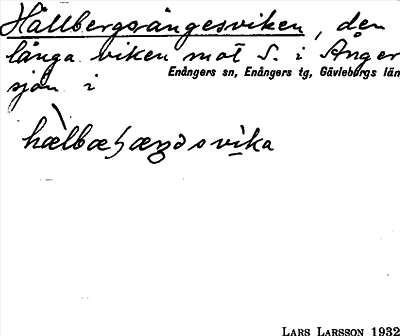 Hällbergsrängesviken, den
långa viken mot S. i Ånger
Enångers sn, Enångers tg, Gävleborgs län
sjön i
LARS LARSSON 1932